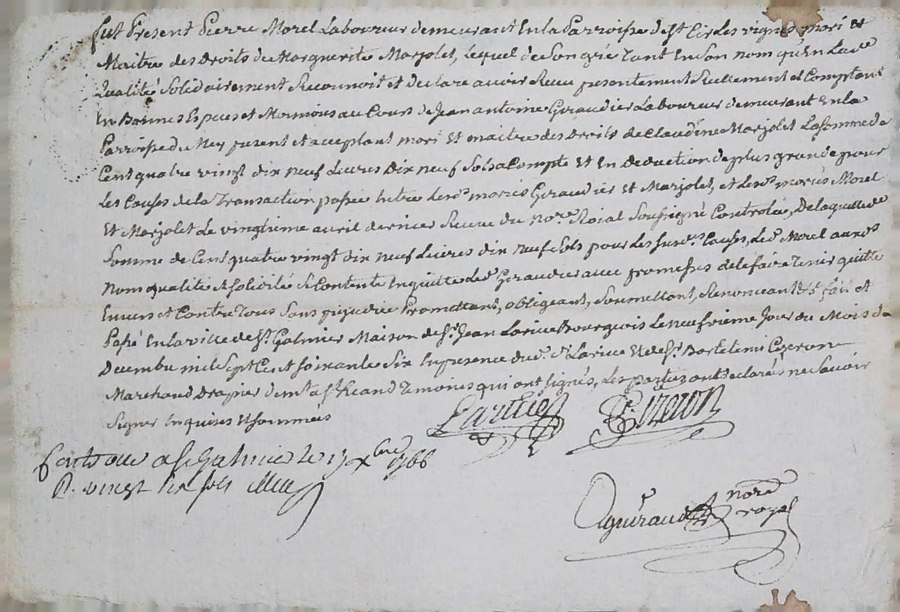 fut Present Pierre Morel Laboureur demeurant En la Parroisse de St Cir Les vignes mari Et
Maitre des Droits de Marguerite Marjolet, lequel de Son gré tant En Son nom qu'En La de
Qualité Solidairement Reconnoit et declare avoir Receu presentement Reellement et Comptant
En Bonnes Especes et Monnoies au Cours de Jean antoine Giraudier Laboureur demeurant En la
Parroisse de Ney present et acceptant mari Et maitre des droits de Claudine Marjolet La Somme de
Cent quatre vingt dix neuf Livres Dix neuf Sols a Compte Et En Deduction de plus grande pour
Les Causes de la Transaction passée Entre Les d. mariés Giraudier et Marjolet, et Les d. mariés Morel
Et Marjolet Le vingtieme avril dernier Receue du nore Roial Soussigné Controlée, De laquelle de
Somme de Cent quatre vingt dix neuf Livres dix neuf Sols pour Les Susd. Causes, Le d. Morel aux d.
nom qualité et Solidité Se Contente En quitte Le d. Giraudier avec promesses de le faire Tenir quitte
Envers et Contre Tous Sans prejudice Promettant, obligeant, Soumettant, Renonceant &c fait et
Passé En la ville de St Galmier Maison de Sr. Jean Larive Bourgeois Le neufvieme Jour du Mois de
Decembre mil Sept Cent Soixante Six En presence du d. Sr. Larive Et de Sr. Bartelemi Cizeron
Marchand Drapier demt. a St Temoins qui ont Signés, Les parties ont declarés ne Savoir
Signer Enquises Et Sommées
Larive Cizeron
Controllé a St Galmier le 13 Xbre 1766
R. vingt Six Sols
nore
royal